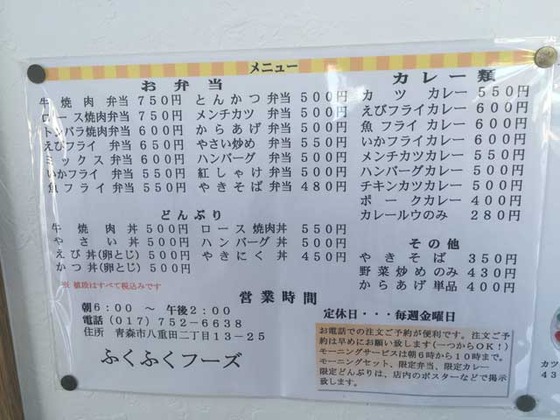 メニュー
お弁当
牛焼肉弁当 750円
ロース焼肉弁当 750円
トンバラ焼肉弁当 600円
えびフライ弁当 650円
ミックス弁当 600円
いかフライ弁当 550円
魚フライ弁当 550円
とんかつ弁当 500円
メンチカツ弁当 500円
からあげ弁当 500円
やさい炒め弁当 550円
ハンバーグ弁当 500円
紅しゃけ弁当 500円
やきそば弁当 480円
カレー類
カツカレー 550円
えびフライカレー 600円
魚フライカレー 600円
いかフライカレー 600円
メンチカツカレー 550円
ハンバーグカレー 500円
チキンカツカレー 500円
ポークカレー 400円
カレールウのみ 280円
どんぶり
牛焼肉丼 500円
やさい丼 500円
えび丼(卵とじ) 500円
かつ丼(卵とじ) 500円
ロース焼肉丼 550円
ハンバーグ丼 500円
やきにく丼 450円
※ 値段はすべて税込みです
その他
やきそば 350円
野菜炒めのみ 430円
からあげ単品 400円
営業時間
朝6:00 ～ 午後2:00
定休日・・・毎週金曜日
電話 (017) 752-6638
住所 青森市八重田二丁目13-25
ふくふくフーズ
お電話での注文ご予約が便利です。注文ご予
約は早めにお願い致します(一つからOK!)
モーニングサービスは朝6時から10時まで。
モーニングセット、限定弁当、限定カレー
限定どんぶりは、店内のポスターなどで掲示
致します。
カツ
43